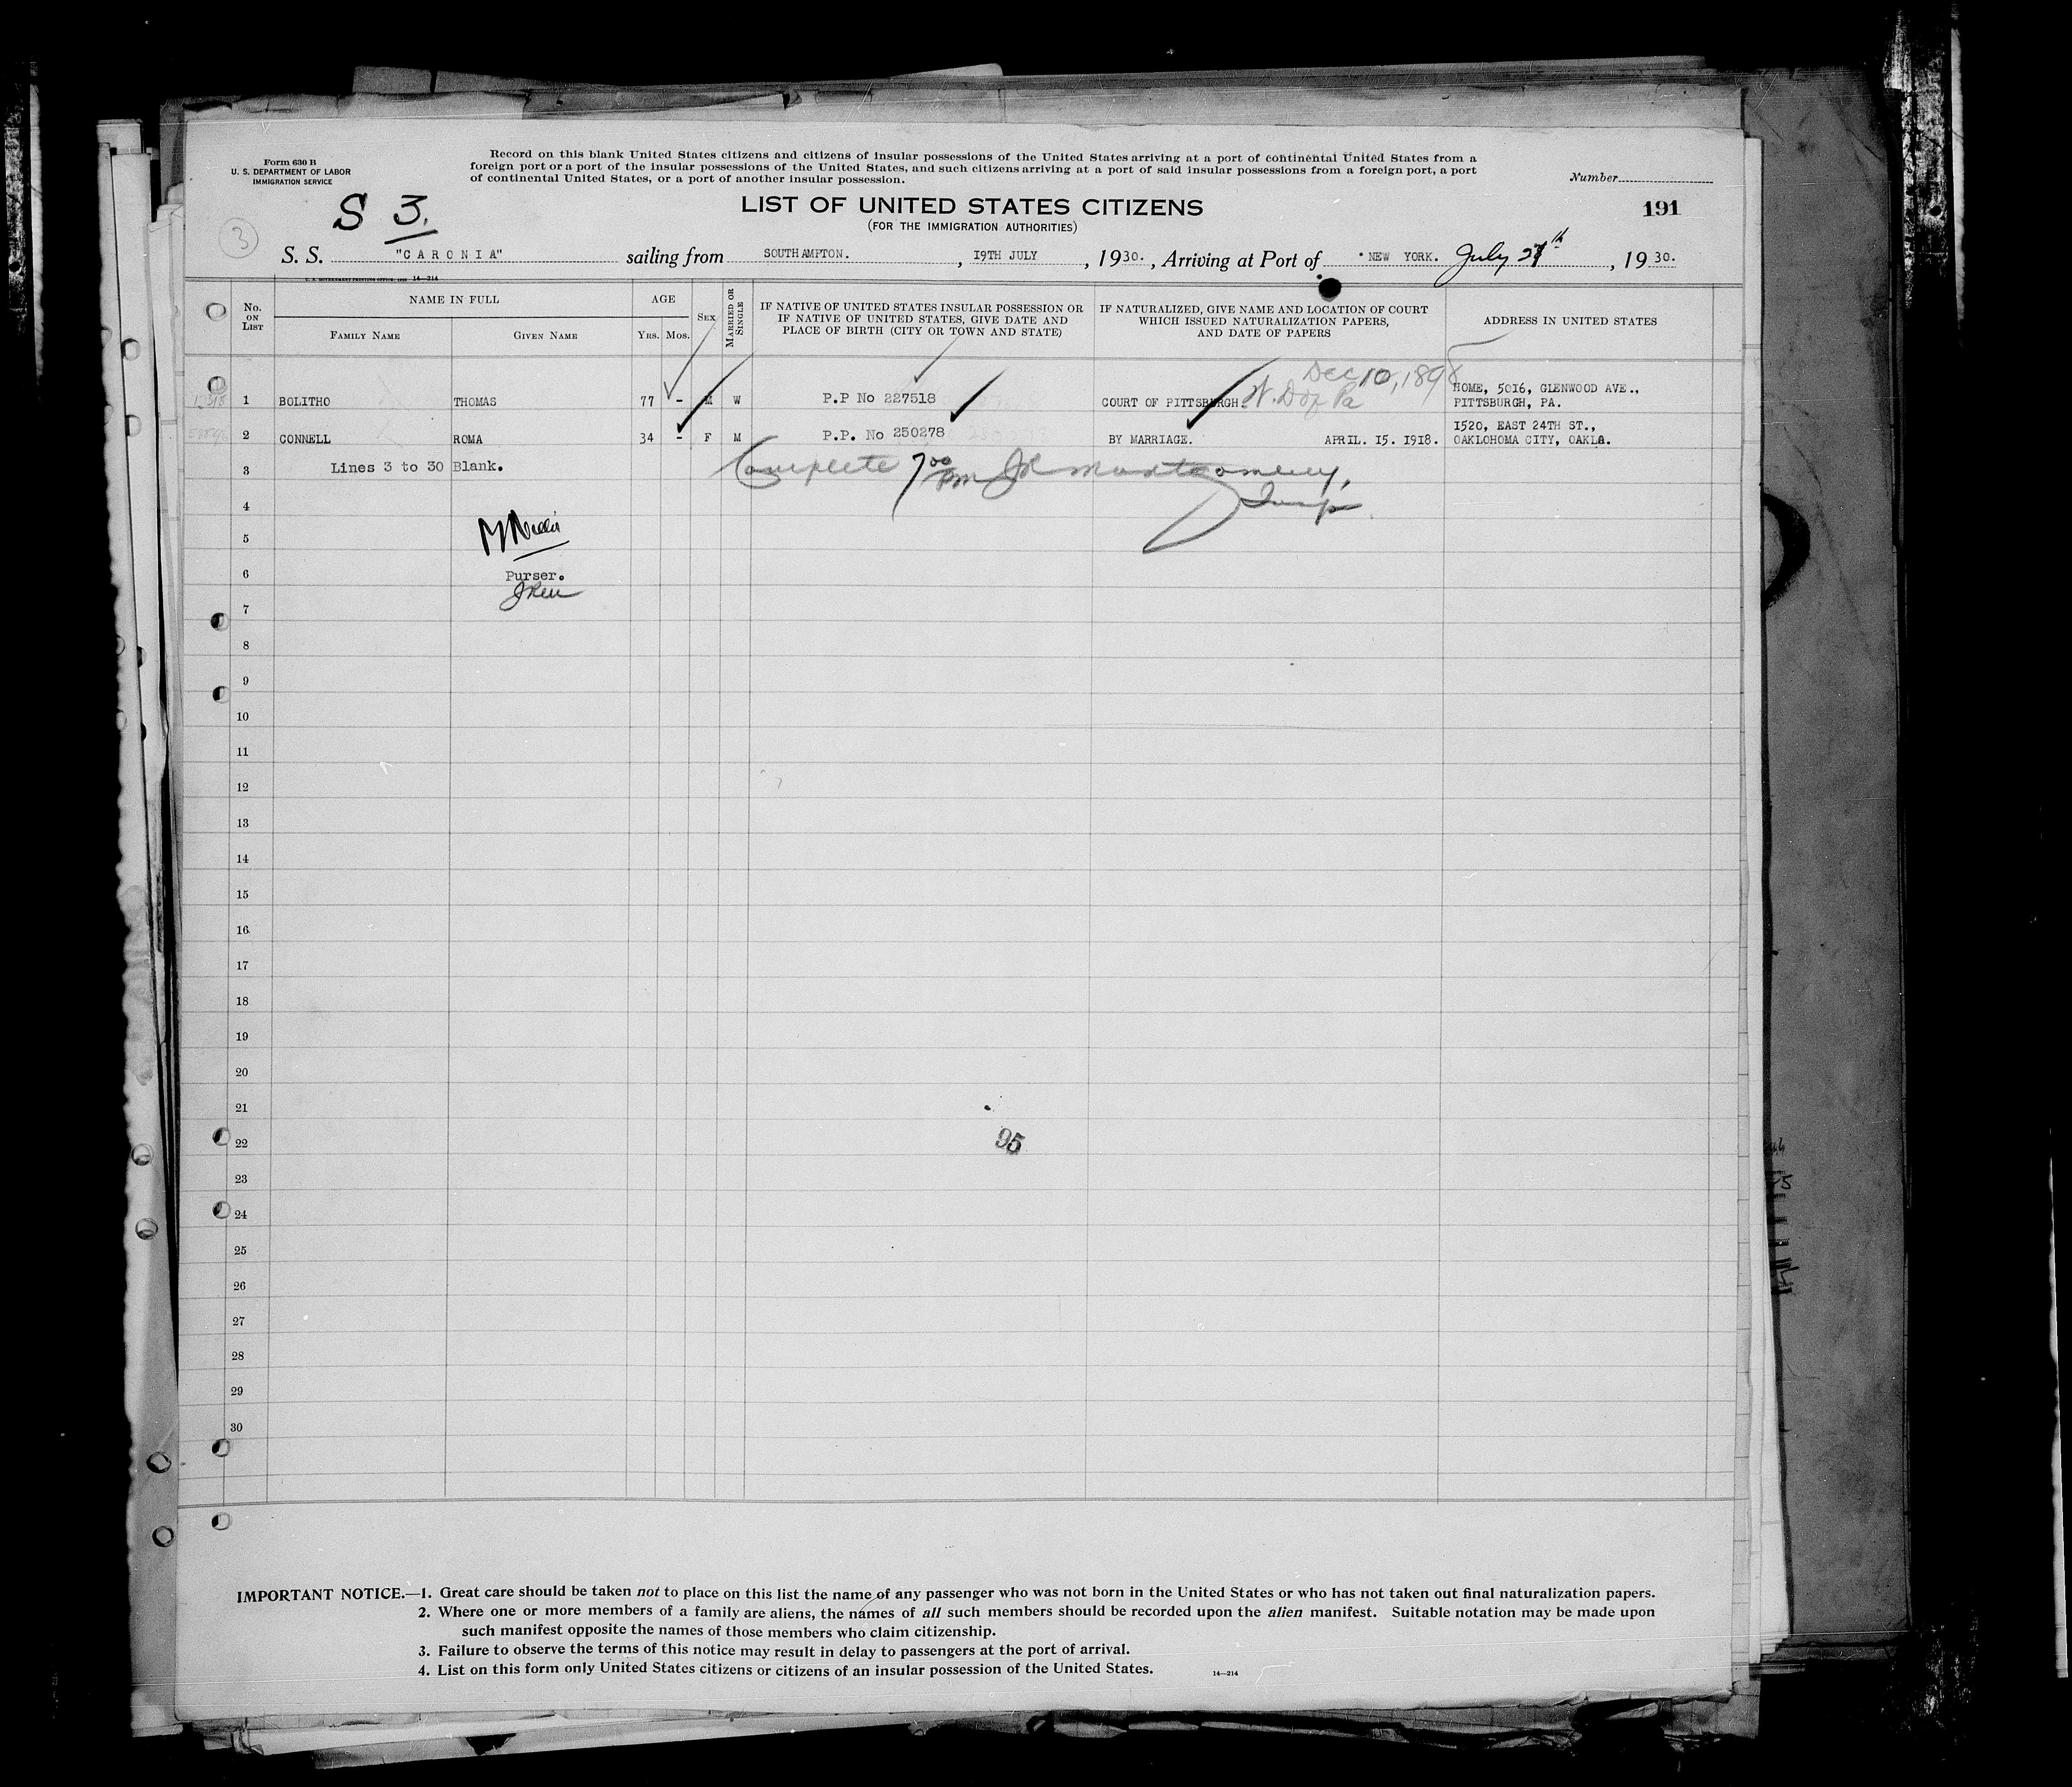 Form 630 B
U. S. DEPARTMENT OF LABOR
IMMIGRATION SERVICE
Record on this blank United States citizens and citizens of insular possessions of the United States arriving at a port of continental United States from a
foreign port or a port of the insular possessions of the United States, and such citizens arriving at a port of said insular possessions from a foreign port, a port
of continental United States, or a port of another insular possession.
Number
S 3.
3
LIST OF UNITED STATES CITIZENS
191
(FOR THE IMMIGRATION AUTHORITIES)
S. S. "CARONIA" sailing from SOUTHAMPTON. , 19TH JULY , 1930. , Arriving at Port of NEW YORK. July 27th , 1930.
14—214
No. ON LIST
NAME IN FULL
FAMILY NAME
GIVEN NAME
AGE
YRS. MOS.
SEX
MARRIED OR SINGLE
IF NATIVE OF UNITED STATES INSULAR POSSESSION OR
IF NATIVE OF UNITED STATES, GIVE DATE AND
PLACE OF BIRTH (CITY OR TOWN AND STATE)
IF NATURALIZED, GIVE NAME AND LOCATION OF COURT
WHICH ISSUED NATURALIZATION PAPERS,
AND DATE OF PAPERS
ADDRESS IN UNITED STATES
Dec 10, 1898
1 BOLITHO THOMAS 77 - M W P.P No 227518 COURT OF PITTSBURGH. W. D of Pa HOME, 5016, GLENWOOD AVE.,
PITTSBURGH, PA.
2 CONNELL ROMA 34 - F M P.P. No 250278 BY MARRIAGE. APRIL. 15. 1918. 1520, EAST 24TH ST.,
OAKLOHOMA CITY, OAKLa.
3 Lines 3 to 30 Blank. Complete 7 00 pm JR Montgomery,
Insp
4
5
6 Purser.
7
8
9
10
11
12
13
14
15
16
17
18
19
20
21
22 95
23
24
25
26
27
28
29
30
IMPORTANT NOTICE.—1. Great care should be taken not to place on this list the name of any passenger who was not born in the United States or who has not taken out final naturalization papers.
2. Where one or more members of a family are aliens, the names of all such members should be recorded upon the alien manifest. Suitable notation may be made upon
such manifest opposite the names of those members who claim citizenship.
3. Failure to observe the terms of this notice may result in delay to passengers at the port of arrival.
4. List on this form only United States citizens or citizens of an insular possession of the United States.
14—214